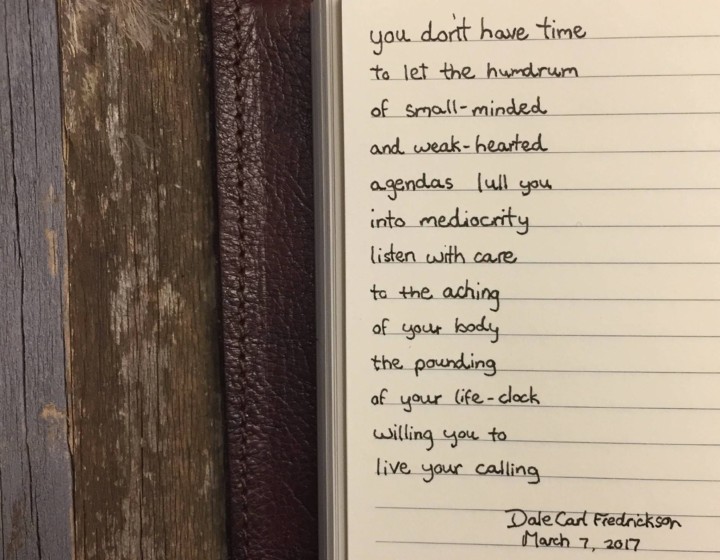 you don't have time
to let the humdrum
of small-minded
and weak-hearted
agendas lull you
into mediocrity
listen with care
to the aching
of your body
the pounding
of your life-clock
willing you to
live your calling
Dale Carl Fredrickson
March 7, 2017